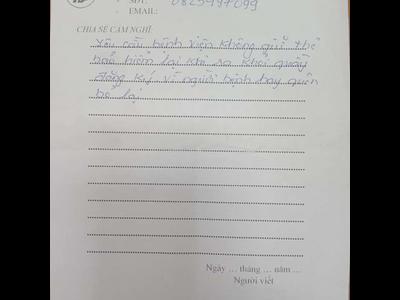 SĐT: 0825997099
EMAIL:
CHIA SẺ CẢM NGHĨ
Yêu cầu bệnh viện không giữ thẻ
bảo hiểm lại khi ra khỏi quầy
đăng ký vì người bệnh hay quên
bỏ lại
Ngày ... tháng ... năm ...
Người viết